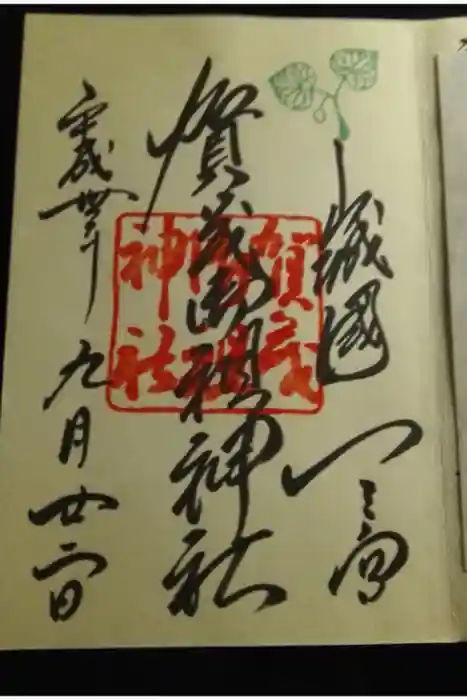 山城國一之宮
賀茂御祖神社
平成卅年九月廿二日
賀茂
御祖
神社